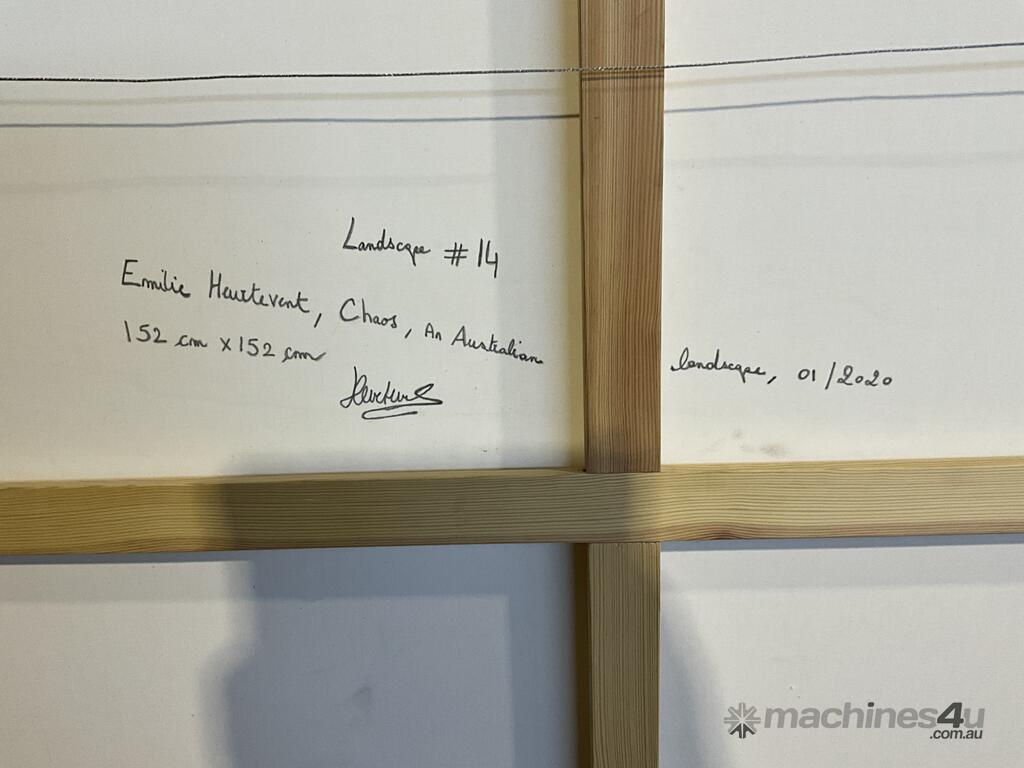 Landscape # 14
Emilie Heurtevent, Chaos, An Australian landscape, 01/2020
152 cm x 152 cm
machines4u
.com.au